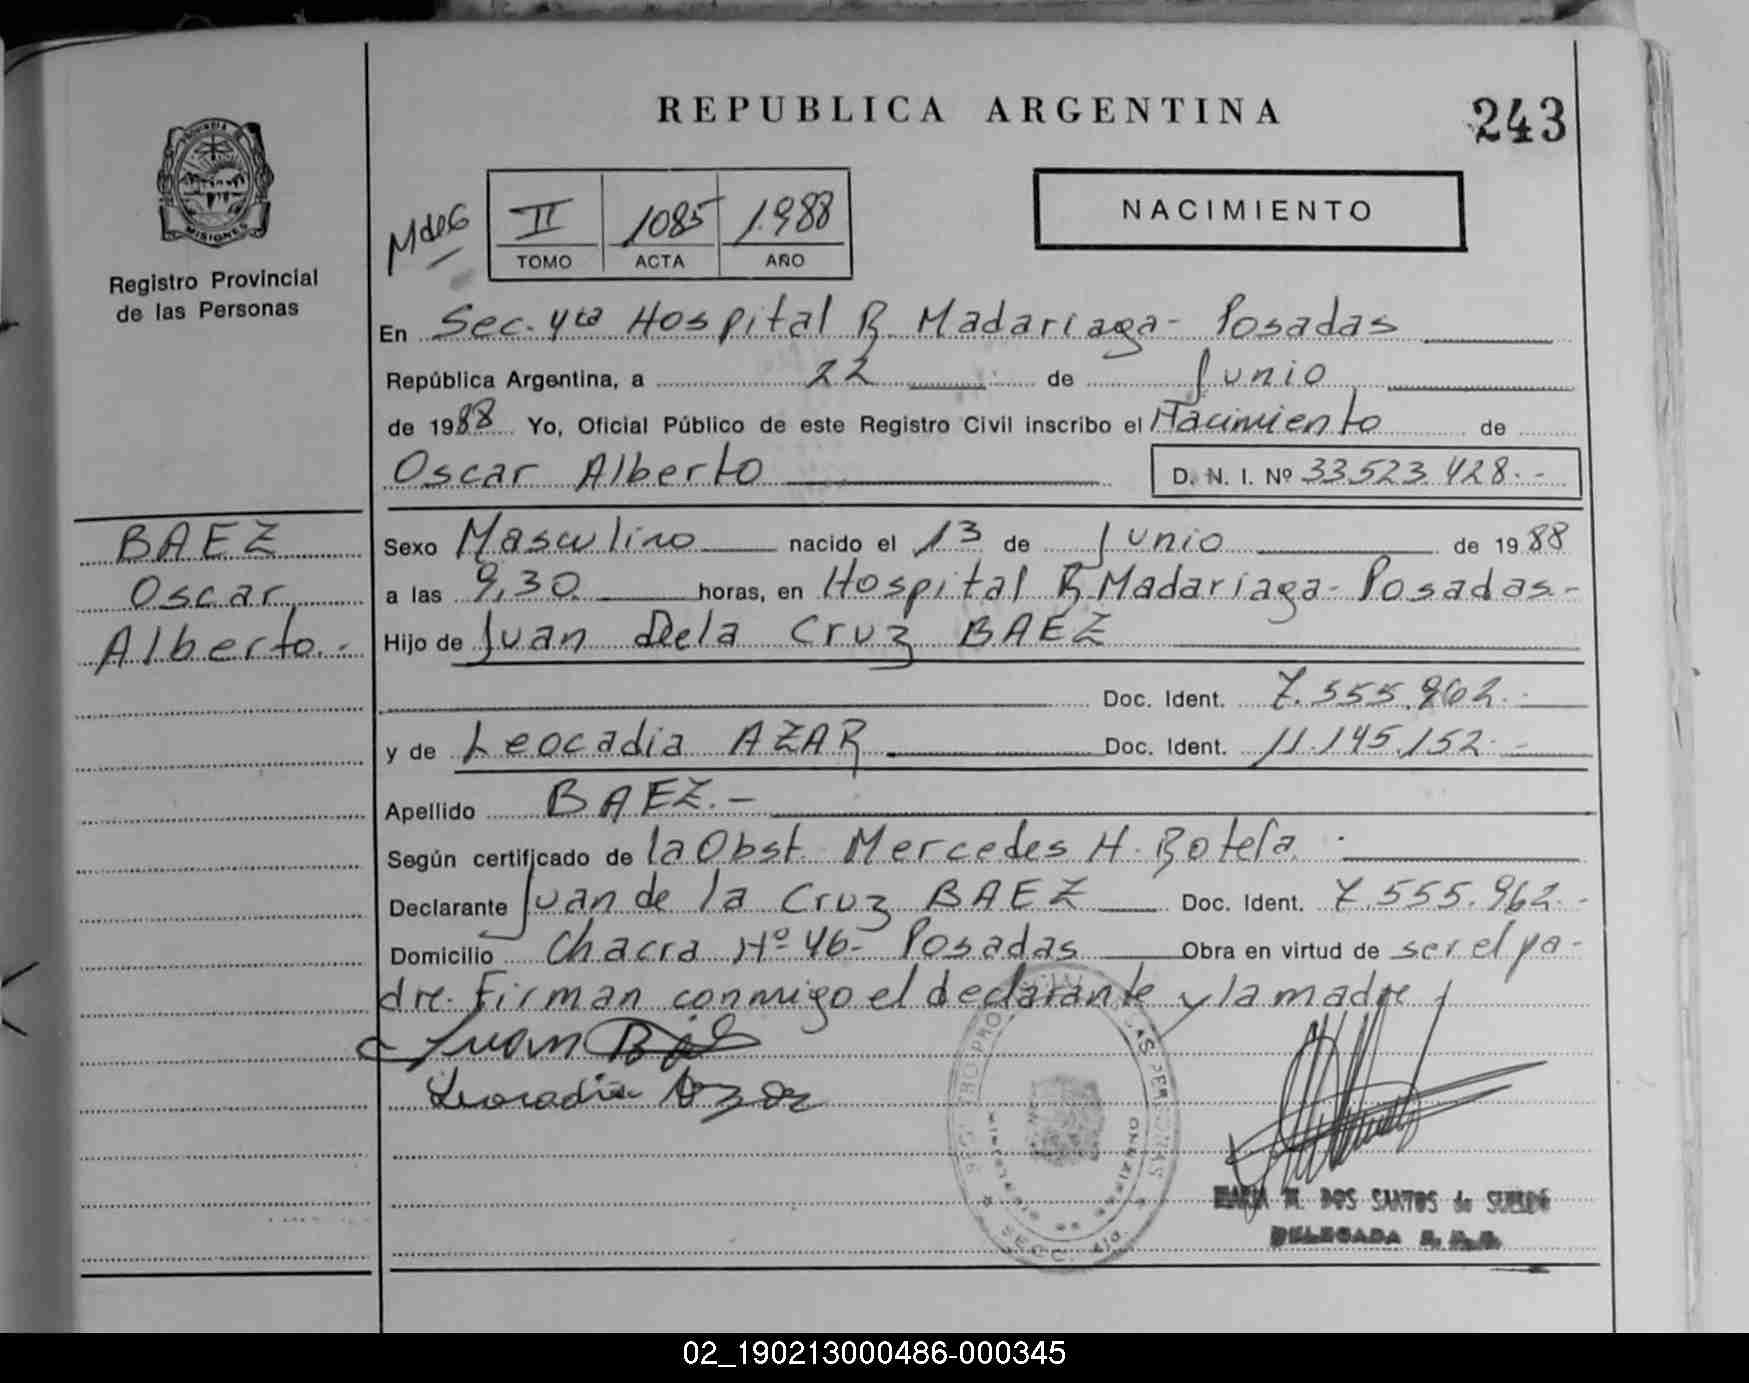 REPUBLICA ARGENTINA
243
PROVINCIA DE
MISIONES
Registro Provincial
de las Personas
MdeG
II 1085 1.988
TOMO ACTA AÑO
NACIMIENTO
En Sec. 4ta Hospital R. Madariaga - Posadas
República Argentina, a 22 de Junio
de 1988 Yo, Oficial Público de este Registro Civil inscribo el Nacimiento de
Oscar Alberto D. N. I. Nº 33.523.428.-
BAEZ
Oscar
Alberto.-
Sexo Masculino nacido el 13 de Junio de 1988
a las 9,30 horas, en Hospital R. Madariaga - Posadas.-
Hijo de Juan Dela Cruz BAEZ
Doc. Ident. 7.555.962.-
y de Leocadia AZAR Doc. Ident. 11.145.152.-
Apellido BAEZ.-
Según certificado de la Obst. Mercedes H. Botela.
Declarante Juan de la Cruz BAEZ Doc. Ident. 7.555.962.-
Domicilio Chacra Nº 46- Posadas Obra en virtud de ser el pa-
dre. Firman conmigo el declarante y la madre
Juan
Leocadia Azar
LAS PERSONAS
SECC. 4ta
MARIA M. DOS SANTOS de
DELEGADA
02_190213000486-000345